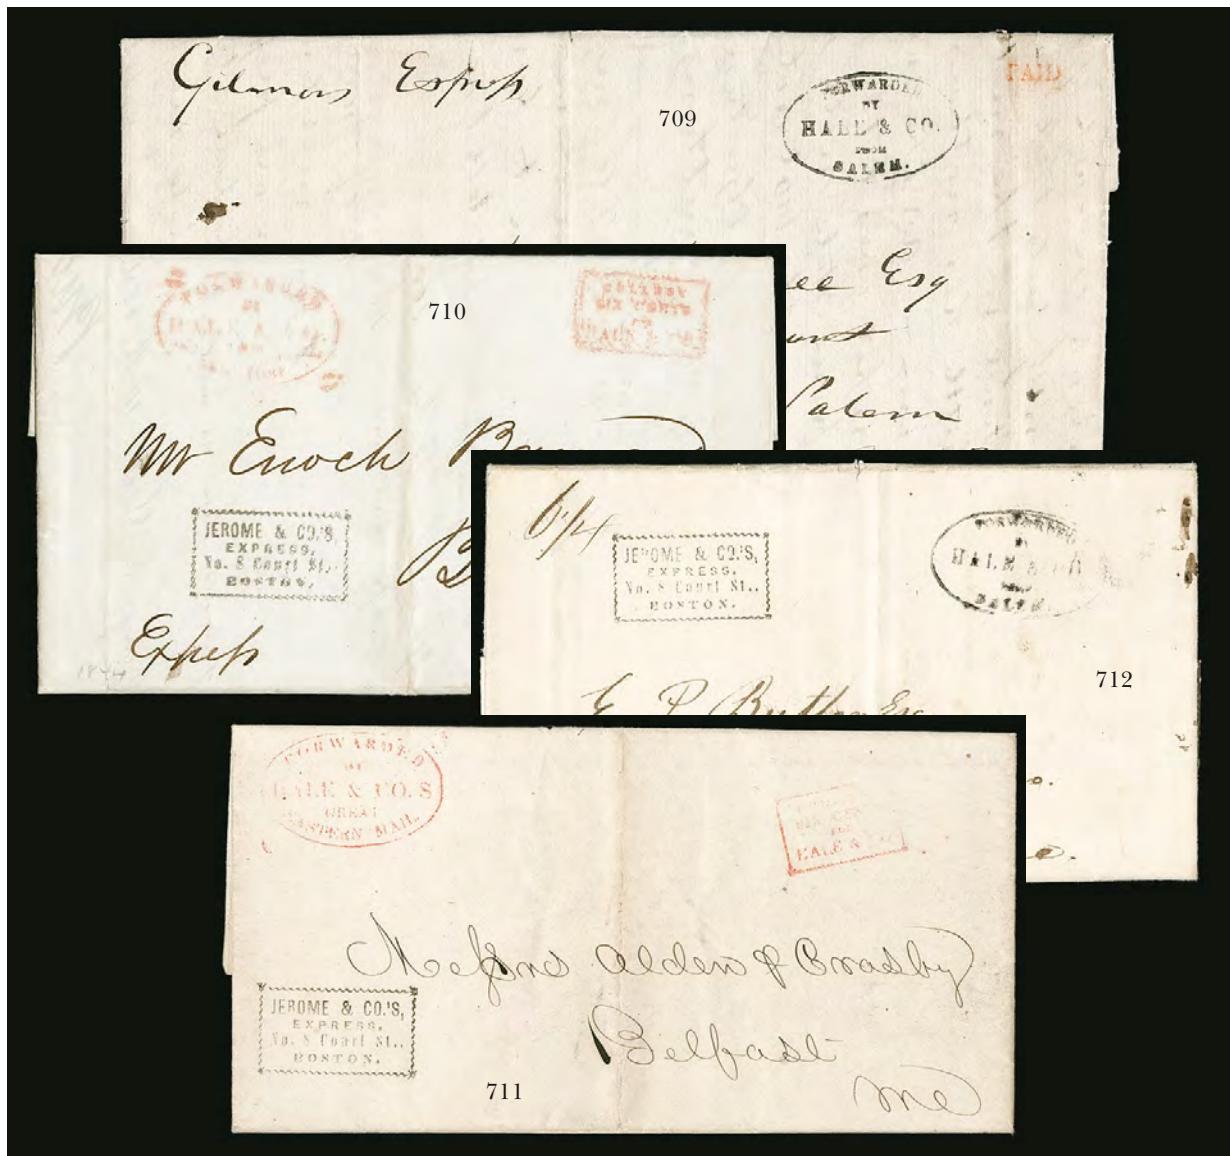 Gilmors Express
709
FORWARDED
BY
HALE & CO.
FROM
SALEM.
PAID
Esq
Salem
710
FORWARDED
BY
HALE &
COLLECT
SIX CENTS
FOR
HALE & CO
Mr Enoch
JEROME & CO.'S,
EXPRESS,
No. 8 Court St.,
BOSTON.
Express
1844
6¼
JEROME & CO.'S,
EXPRESS,
No. 8 Court St.,
BOSTON.
FORWARDED
BY
HALE & CO
FROM
SALEM.
712
Butler Esq
FORWARDED
BY
HALE & CO.S
GREAT
EASTERN MAIL.
FOR
HALE &
Messrs Alden & Crosby
Belfast
Me
JEROME & CO.'S,
EXPRESS,
No. 8 Court St.,
BOSTON.
711